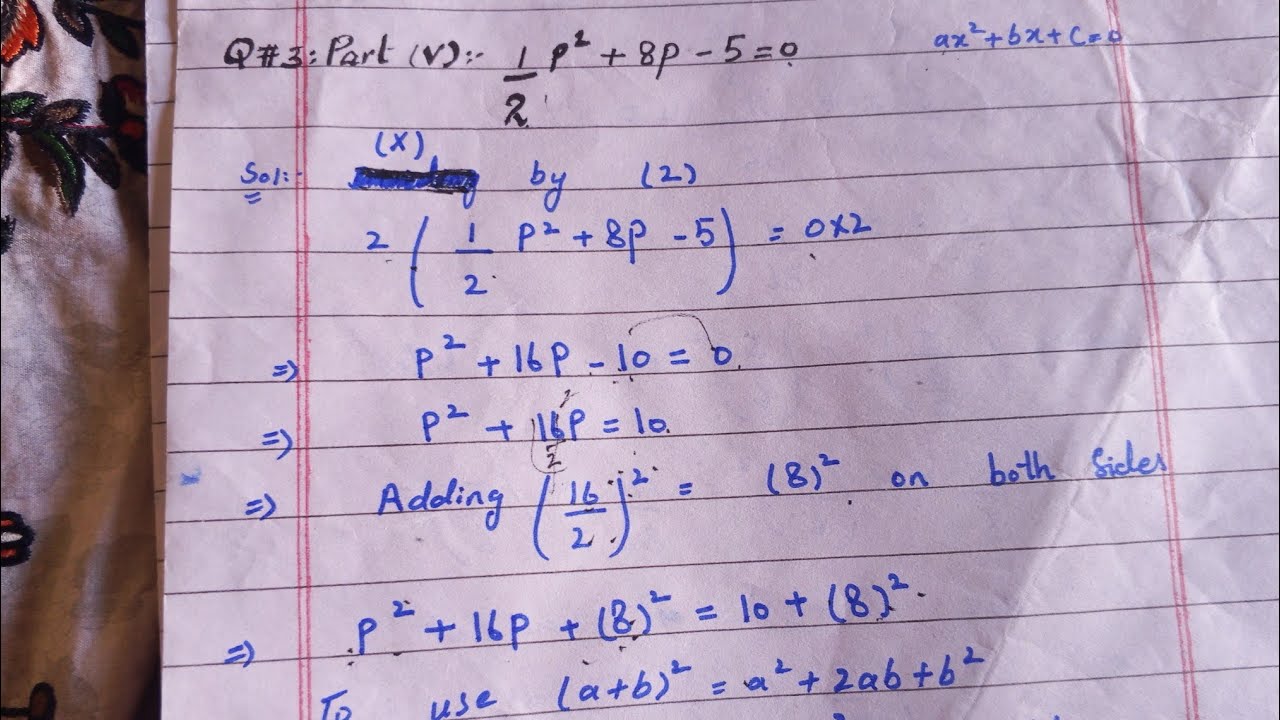 Q#3: Part (V):- 1/2 P² + 8P - 5 = 0
ax² + bx + c = 0
Sol:- (X) by (2)
2 ( 1/2 P² + 8P - 5 ) = 0x2
=> P² + 16P - 10 = 0
=> P² + 16P = 10
2
=> Adding ( 16/2 )² = (8)² on both sides
=> P² + 16P + (8)² = 10 + (8)².
To use (a+b)² = a² + 2ab + b²